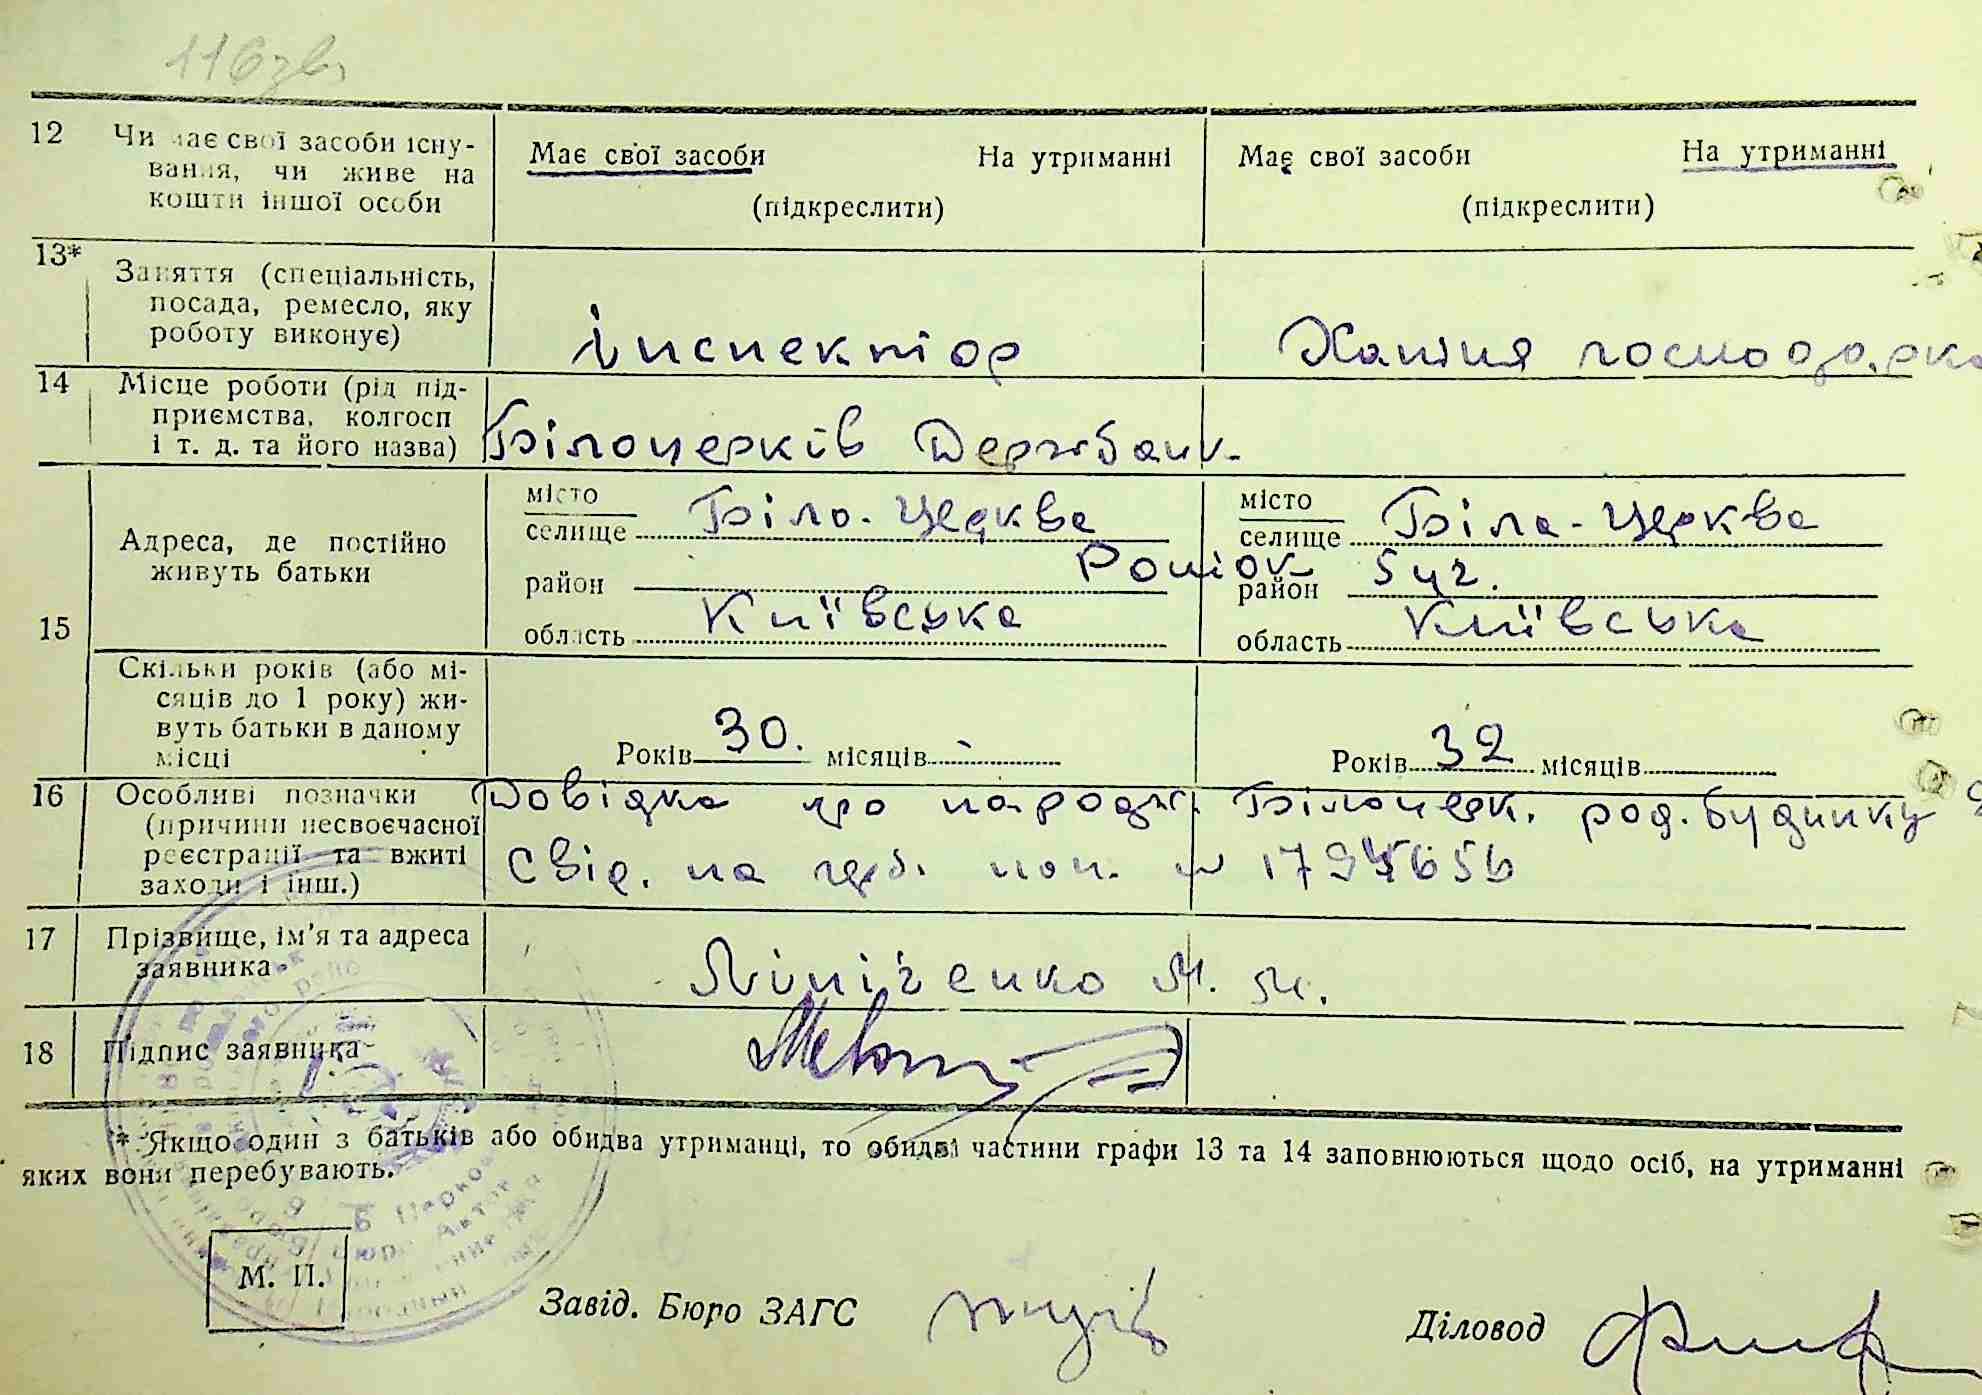 116зв.
12 Чи має свої засоби існу-
вання, чи живе на
кошти іншої особи
Має свої засоби На утриманні
(підкреслити)
Має свої засоби На утриманні
(підкреслити)
13* Заняття (спеціальність,
посада, ремесло, яку
роботу виконує)
інспектор
Хатня господарка
14 Місце роботи (рід під-
приємства, колгосп
і т. д. та його назва)
Білоцерків Держбанк.
15 Адреса, де постійно
живуть батьки
місто
селище Біла-Церква
район
область Київська
місто
селище Біла-Церква
район 5 уч.
область Київська
Скільки років (або мі-
сяців до 1 року) жи-
вуть батьки в даному
місці
Років 30. місяців -
Років 32 місяців
16 Особливі позначки
(причини несвоєчасної
реєстрації та вжиті
заходи і інш.)
Довідка про народж. Білоцерк. род. будинку
Свід. на герб. пап.
17 Прізвище, ім'я та адреса
заявника
Лініченко М. М.
18 Підпис заявника
* Якщо один з батьків або обидва утриманці, то обидві частини графи 13 та 14 заповнюються щодо осіб, на утриманні
яких вони перебувають.
М. П.
Завід. Бюро ЗАГС
Діловод